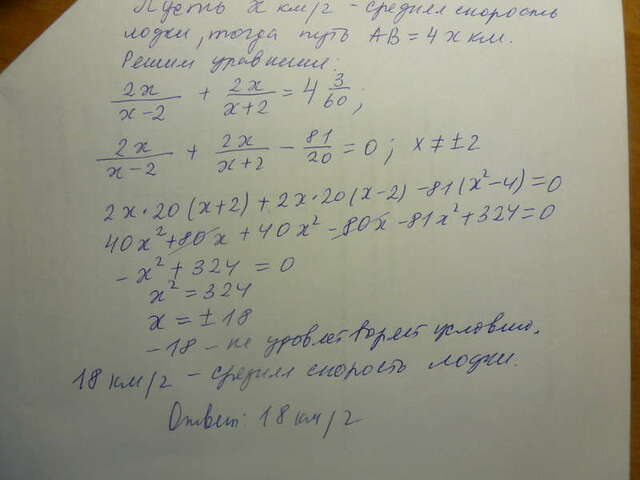 Пусть x км/г - средняя скорость
лодки, тогда путь AB = 4x км.
Решим уравнение:
2x/(x-2) + 2x/(x+2) = 4 3/60;
2x/(x-2) + 2x/(x+2) - 81/20 = 0; x ≠ ±2
2x·20(x+2) + 2x·20(x-2) - 81(x²-4) = 0
40x² + 80x + 40x² - 80x - 81x² + 324 = 0
-x² + 324 = 0
x² = 324
x = ±18
-18 - не удовлетворяет условию.
18 км/г - средняя скорость лодки.
Ответ: 18 км/г